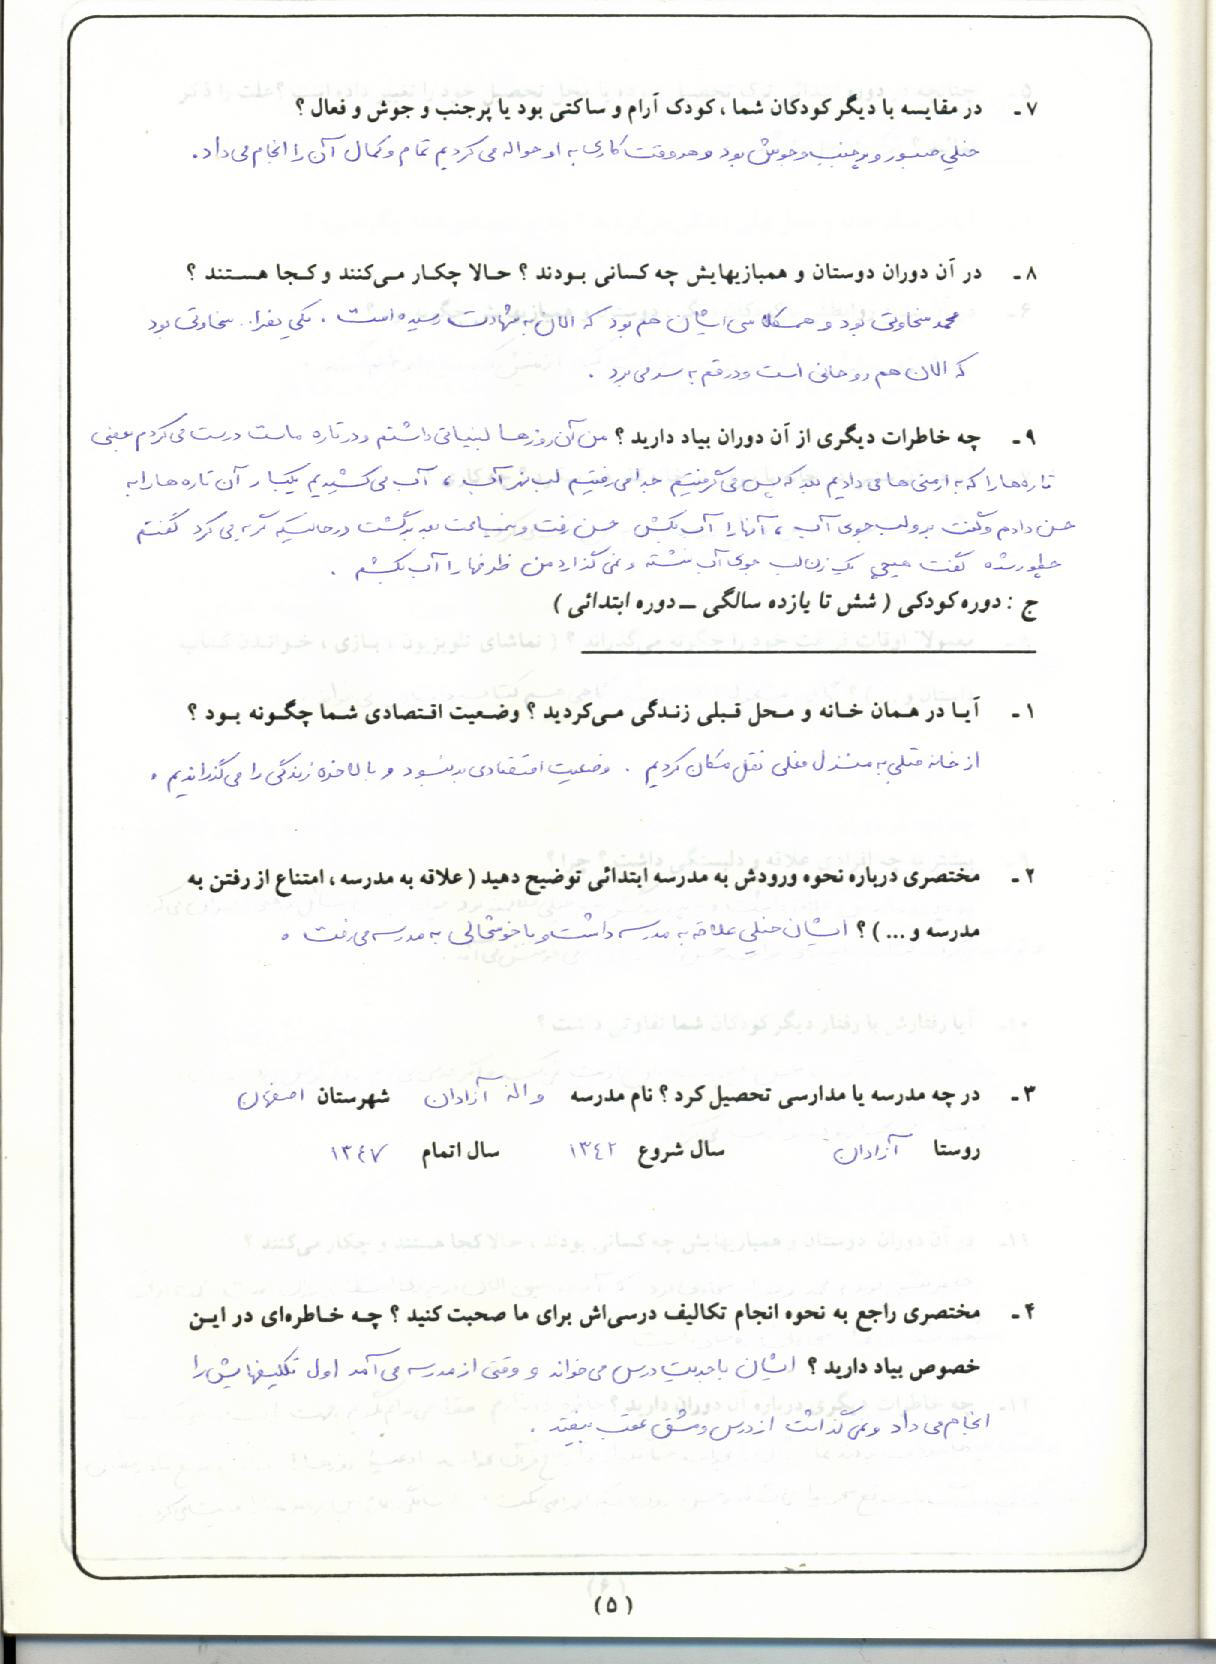 ۷ـ در مقایسه با دیگر کودکان شما ، کودک آرام و ساکتی بود یا پرجنب و جوش و فعال ؟
خیلی صبور و پرجنب و جوش بود و هر وقت کاری به او حواله می کردیم تمام و کمال آن را انجام می داد .
۸ـ در آن دوران دوستان و همبازیهایش چه کسانی بودند ؟ حالا چکار می‌کنند و کجا هستند ؟
محمد سخاوتی بود و همکلاسی ایشان هم بود که الان به شهادت رسیده است ، یکی نفر از سخاوتی بود
که الان هم روحانی است و در قم به سر می برد .
۹ـ چه خاطرات دیگری از آن دوران بیاد دارید ؟ من آن روزها لبنیاتی داشتم و در تاره ماست درست می کردم بعضی
تاره ها را که به ارمنی ها می دادیم بعد که پس می گرفتیم می رفتیم لب نهر آب ، آب می کشیدیم یکبار آن تاره ها را به
حسن دادم و گفت برو لب جوی آب ، آنها را آب بکش حسن رفت و بعد برگشت در حالیکه گریه می کرد گفتم
چطور شده گفت هیچی یک زن لب جوی آب نشسته و نمی گذارد من ظرفها را آب بکشم .
ج : دوره کودکی ( شش تا یازده سالگی ــ دوره ابتدائی )
۱ـ آیا در همان خانه و محل قبلی زندگی می‌کردید ؟ وضعیت اقتصادی شما چگونه بود ؟
از خانه قبلی به منزل فعلی نقل مکان کردیم . وضعیت اقتصادی بد نبود و بالاخره زندگی را می گذراندیم .
۲ـ مختصری درباره نحوه ورودش به مدرسه ابتدائی توضیح دهید ( علاقه به مدرسه ، امتناع از رفتن به
مدرسه و ... ) ؟ ایشان خیلی علاقه به مدرسه داشت و با خوشحالی به مدرسه می رفت .
۳ـ در چه مدرسه یا مدارسی تحصیل کرد ؟ نام مدرسه واله آزادان شهرستان اصفهان
روستا آزادان سال شروع ۱۳۴۲ سال اتمام ۱۳۴۷
۴ـ مختصری راجع به نحوه انجام تکالیف درسی‌اش برای ما صحبت کنید ؟ چه خاطره‌ای در این
خصوص بیاد دارید ؟ ایشان با جدیت درس می خواند و وقتی از مدرسه می آمد اول تکلیفهایش را
انجام می داد و نمی گذاشت از درس و مشق عقب بیفتد .
(۵)